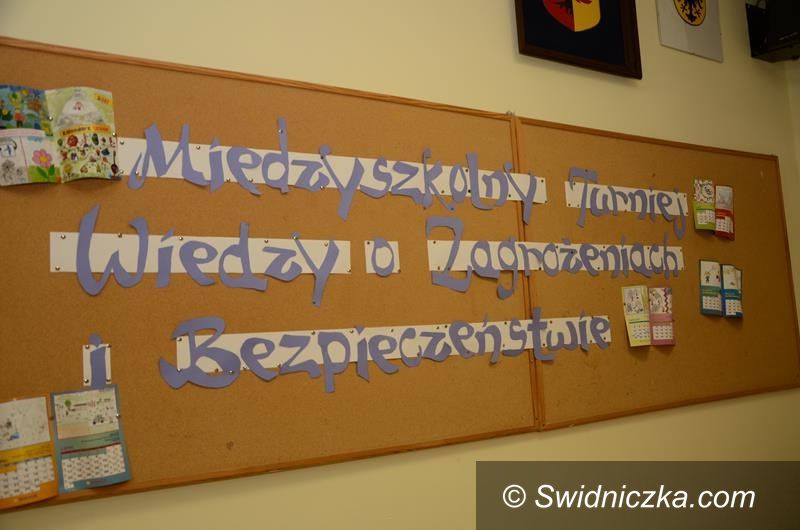 Międzyszkolny Turniej
Wiedzy o Zagrożeniach
i Bezpieczeństwie
© Swidniczka.com